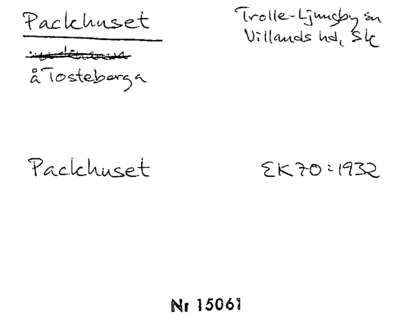 Packhuset
Trolle-Ljungby sn
Villands hd, Sk
å Tosteberga
Packhuset
EK 70:1932
Nr 15061